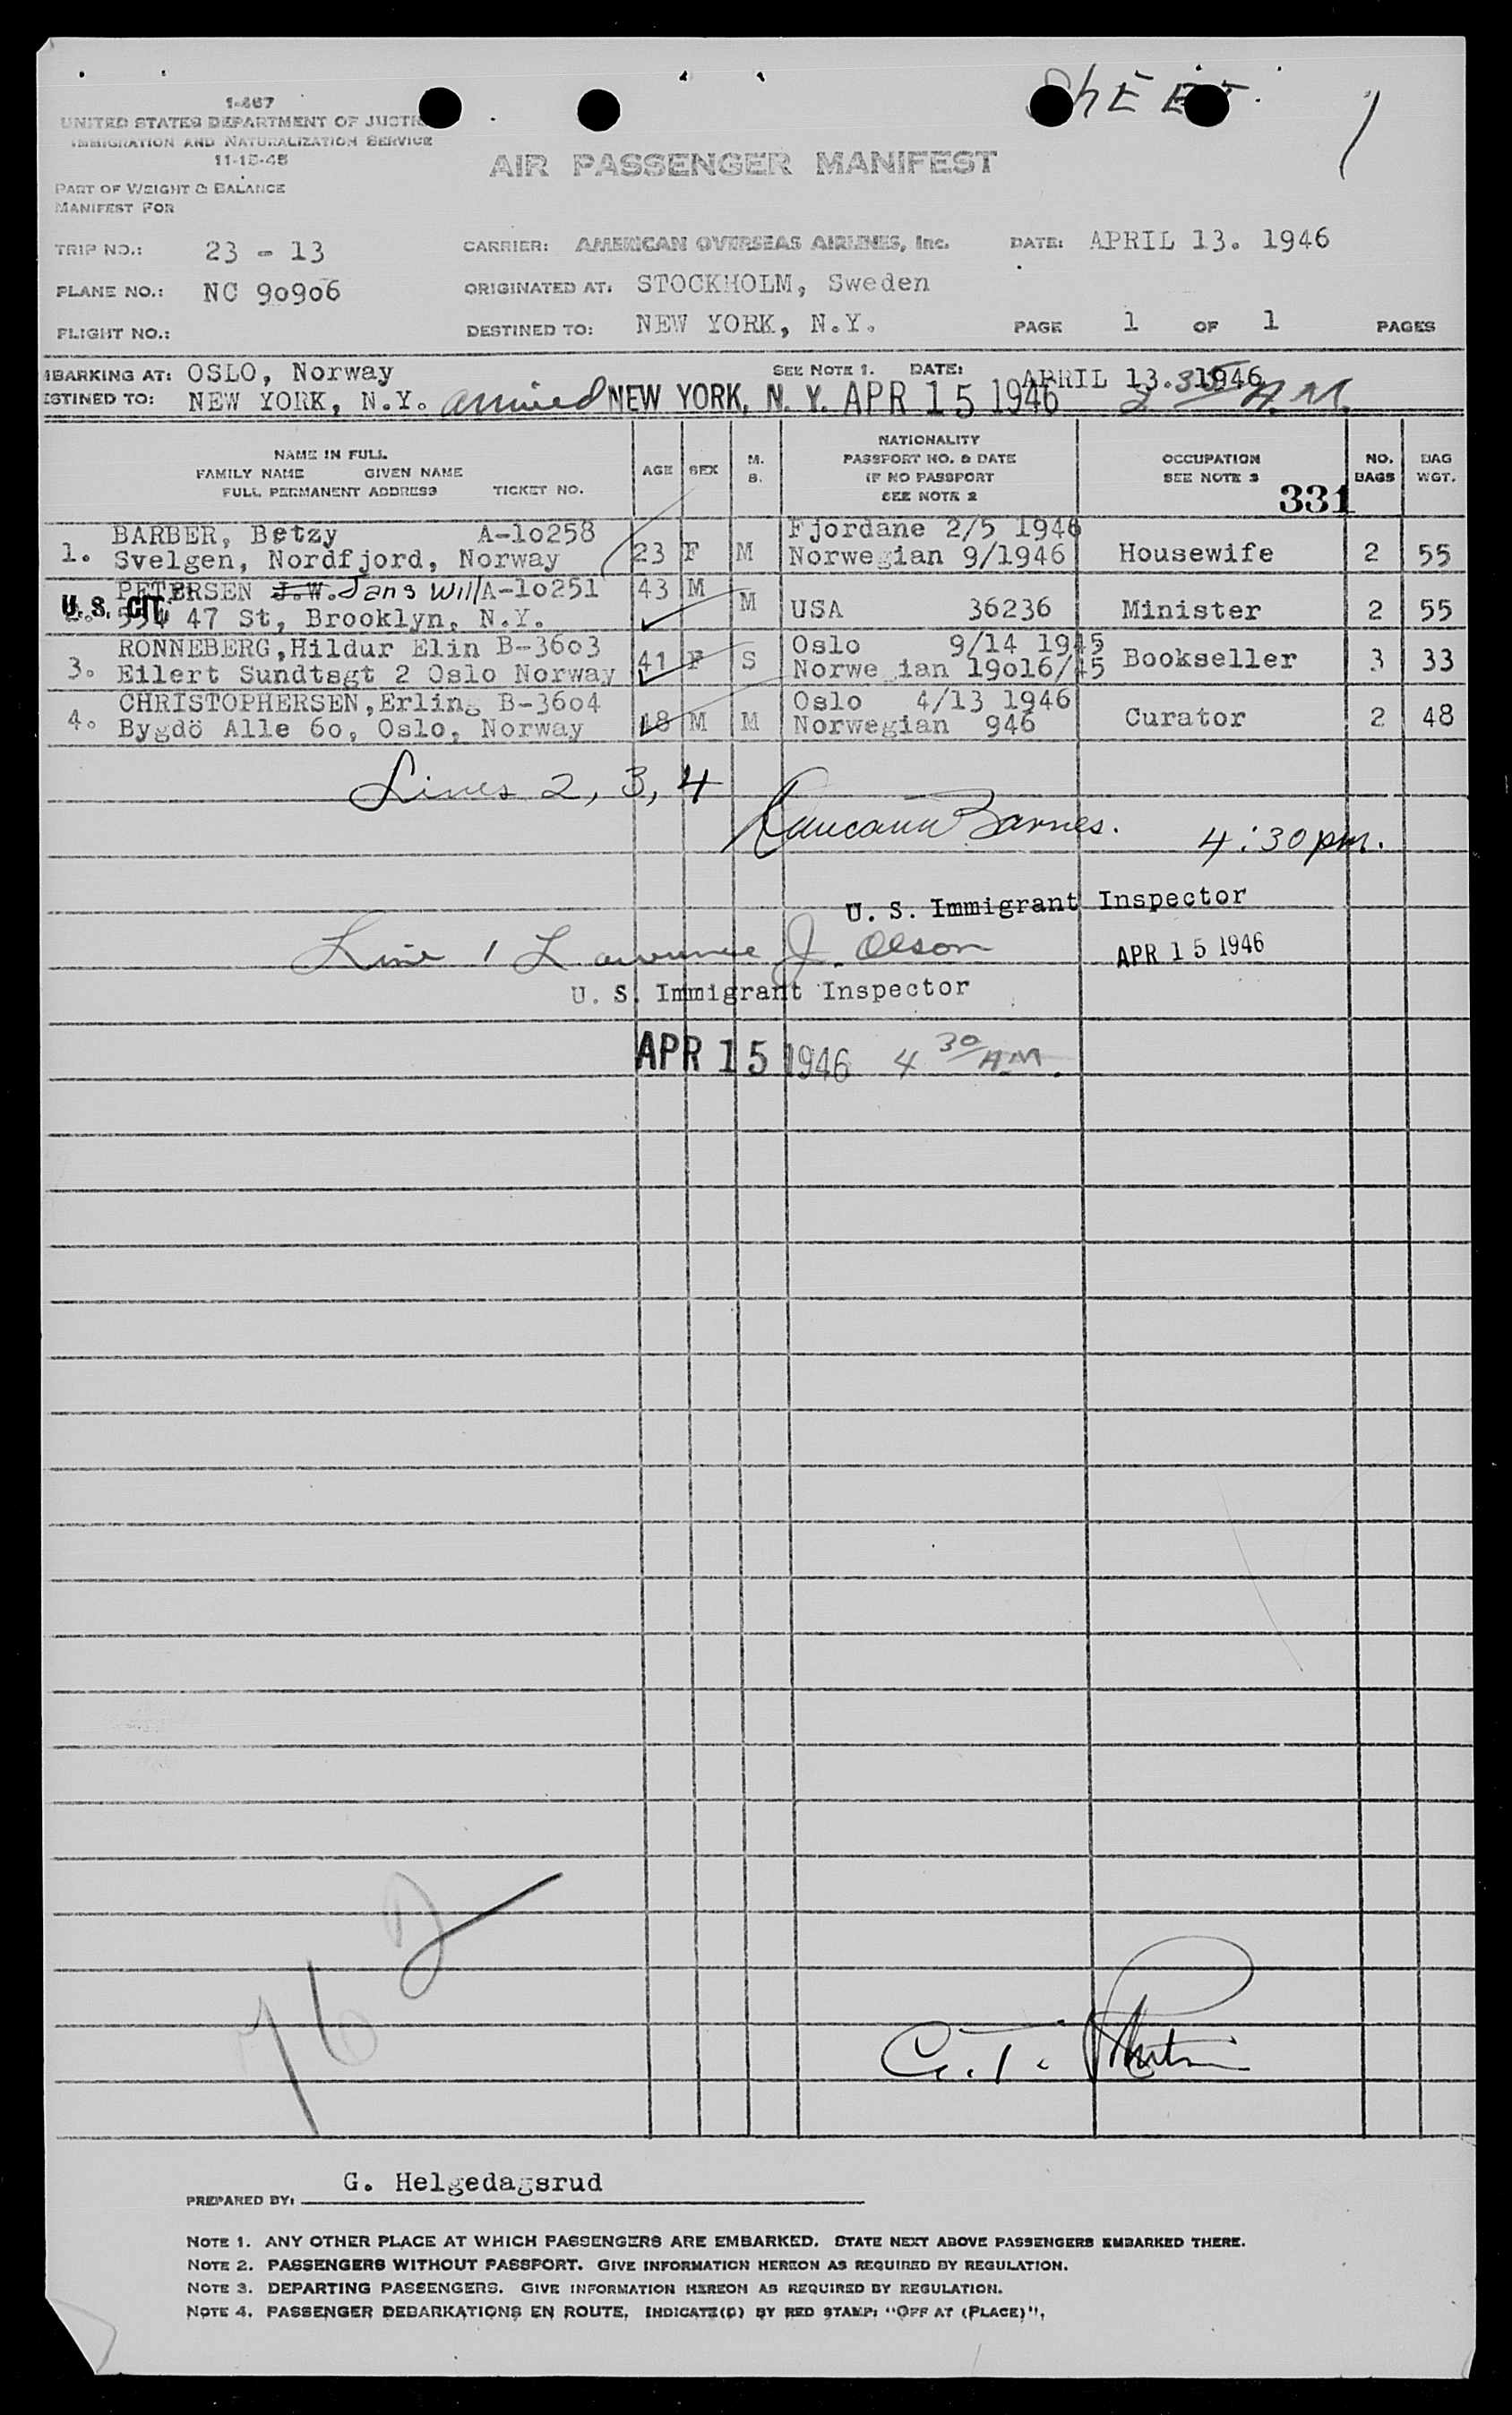 ShEET.
1-467
UNITED STATES DEPARTMENT OF JUSTI
IMMIGRATION AND NATURALIZATION SERVICE
11-15-45
AIR PASSENGER MANIFEST
PART OF WEIGHT & BALANCE
MANIFEST FOR
TRIP NO.: 23 - 13 CARRIER: AMERICAN OVERSEAS AIRLINES, Inc. DATE: APRIL 13. 1946
PLANE NO.: NC 90906 ORIGINATED AT: STOCKHOLM, Sweden
FLIGHT NO.: DESTINED TO: NEW YORK, N.Y. PAGE 1 OF 1 PAGES
MBARKING AT: OSLO, Norway SEE NOTE 1. DATE: APRIL 13. 1946
ESTINED TO: NEW YORK, N.Y. arrived NEW YORK, N. Y. APR 15 1946 A.M.
NAME IN FULL
FAMILY NAME GIVEN NAME
FULL PERMANENT ADDRESS TICKET NO.
AGE SEX M. S.
NATIONALITY
PASSPORT NO. & DATE
IF NO PASSPORT
SEE NOTE 2
OCCUPATION
SEE NOTE 3
331
NO. BAGS
BAG WGT.
BARBER, Betzy A-10258 Fjordane 2/5 1946
1. Svelgen, Nordfjord, Norway 23 F M Norwegian 9/1946 Housewife 2 55
PETERSEN J.W. Jans Will A-10251 43 M M
U.S. CIT. 554 47 St, Brooklyn, N.Y. USA 36236 Minister 2 55
RONNEBERG, Hildur Elin B-3603 Oslo 9/14 1945
3. Eilert Sundtsgt 2 Oslo Norway 41 F S Norwe ian 19016/45 Bookseller 3 33
CHRISTOPHERSEN, Erling B-3604 Oslo 4/13 1946
4. Bygdö Alle 60, Oslo, Norway 48 M M Norwegian 946 Curator 2 48
Lines 2, 3, 4
Barnes. 4:30 pm.
U. S. Immigrant Inspector
Line 1 Lawrence J. Olson APR 15 1946
U. S. Immigrant Inspector
APR 15 1946 4 30 A.M.
76
G. T.
PREPARED BY: G. Helgedagsrud
NOTE 1. ANY OTHER PLACE AT WHICH PASSENGERS ARE EMBARKED. STATE NEXT ABOVE PASSENGERS EMBARKED THERE.
NOTE 2. PASSENGERS WITHOUT PASSPORT. GIVE INFORMATION HEREON AS REQUIRED BY REGULATION.
NOTE 3. DEPARTING PASSENGERS. GIVE INFORMATION HEREON AS REQUIRED BY REGULATION.
NOTE 4. PASSENGER DEBARKATIONS EN ROUTE, INDICATE(D) BY RED STAMP: "OFF AT (PLACE)".